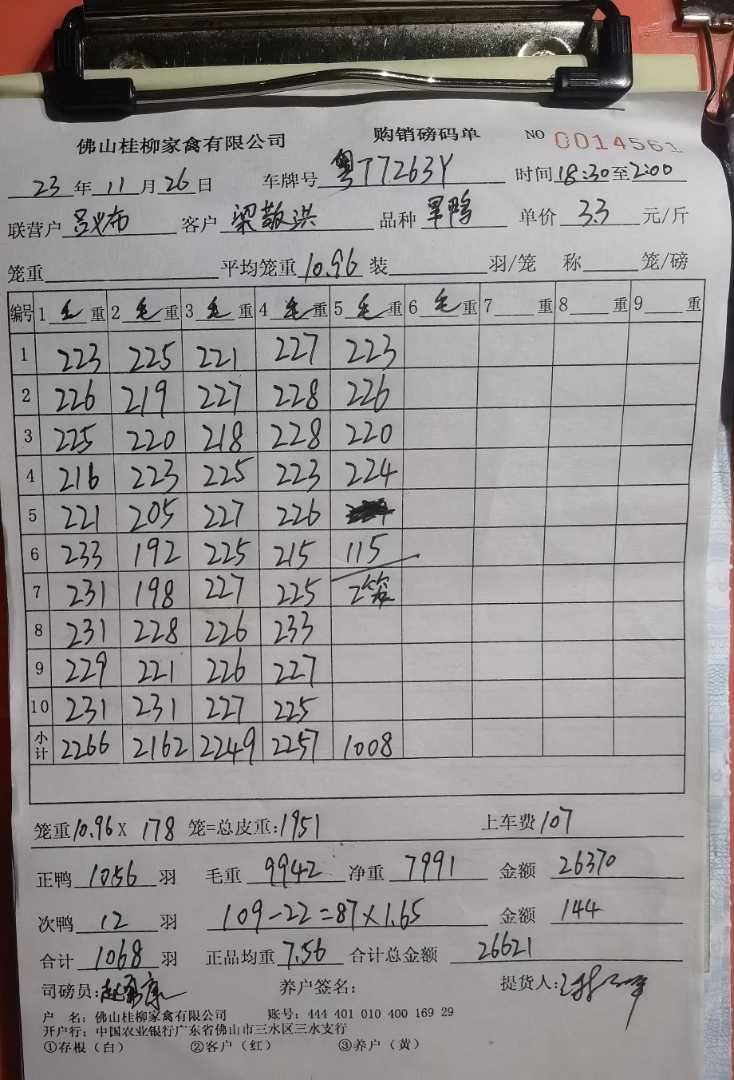 佛山桂柳家禽有限公司 购销磅码单 NO 0014561
23年11月26日 车牌号 粤T7263Y 时间18:30至2:00
联营户 吕义布 客户 梁敬洪 品种 旱鸭 单价 3.3 元/斤
笼重 平均笼重10.96 装 羽/笼 称 笼/磅
编号 1 毛重 2 毛重 3 毛重 4 毛重 5 毛重 6 毛重 7 重 8 重 9 重
1 223 225 221 227 223
2 226 219 227 228 226
3 225 220 218 228 220
4 216 223 225 223 224
5 221 205 227 226
6 233 192 225 215 115
7 231 198 227 225 2笼
8 231 228 226 233
9 229 221 226 227
10 231 231 227 225
小计 2266 2162 2249 2257 1008
笼重10.96X 178 笼=总皮重:1951 上车费107
正鸭 1056 羽 毛重 9942 净重 7991 金额 26370
次鸭 12 羽 109-22=87×1.65 金额 144
合计 1068 羽 正品均重 7.56 合计总金额 26621
司磅员: 养户签名: 提货人:
户 名: 佛山桂柳家禽有限公司 账号: 444 401 010 400 169 29
开户行: 中国农业银行广东省佛山市三水区三水支行
①存根（白） ②客户（红） ③养户（黄）